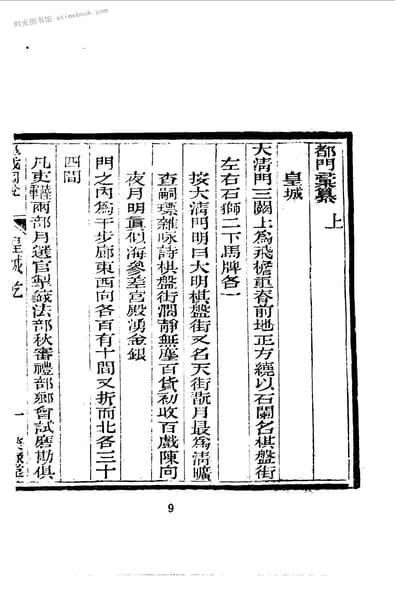 时光图书馆 etimebook.com
都門彙纂 上
皇城
大清門三闕上為飛檐重脊前地正方繞以石闌名棋盤街
左右石獅二下馬牌各一
按大清門明曰大明棋盤街又名天街翫月最為清曠
查嗣瑮雜咏詩棋盤街濶靜無塵百貨初收百戲陳向
夜月明眞似海參差宮殿湧金銀
門之內為千步廊東西向各百有十間又折而北各三十
四間
凡吏兵兩部月選官掣籤法部秋審禮部鄉會試磨勘俱
皇城
一
9